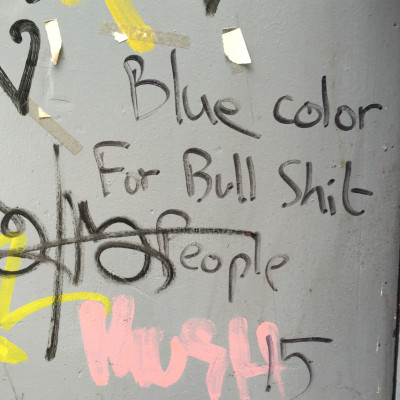 Blue color
For Bull Shit
People
15